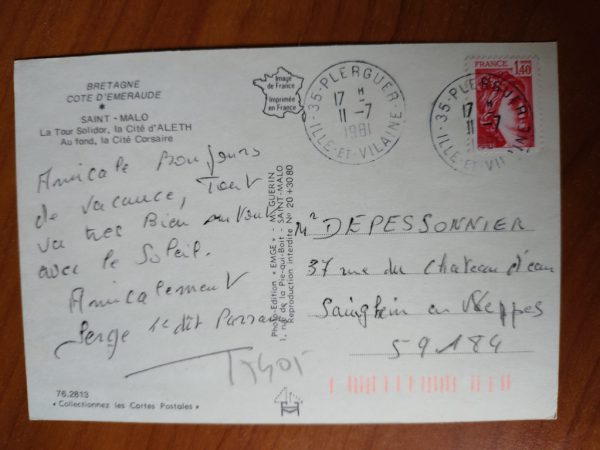 BRETAGNE
COTE D'EMERAUDE
SAINT - MALO
La Tour Solidor, la Cité d'ALETH
Au fond, la Cité Corsaire
Amicale Bonjours
de vacance, Tout
va tres Bien surtout
avec le Soleil.
Amicalement
Serge
76.2813
« Collectionnez les Cartes Postales »
Image
de France
Imprimée
en France
Photo-Edition « EMGE » - M. GUERIN
1, rue de la Pie-qui-Boit - SAINT-MALO
Reproduction interdite No 20+3080
35-PLERGUER
17 H
11-7
1981
ILLE-ET-VILAINE
FRANCE
1,40
35-PLERGUER
17 H
11-7
Mr DEPESSONNIER
37 rue du Chateau d'eau
Sainghin en Weppes
59184